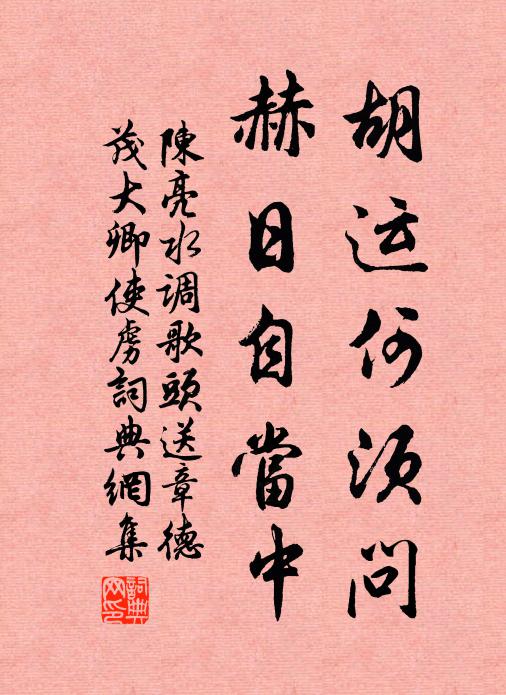 胡运何须問
赫日自當中
陳亮水调歌頭送章德
茂大卿使虏詞典網集
詞典网印